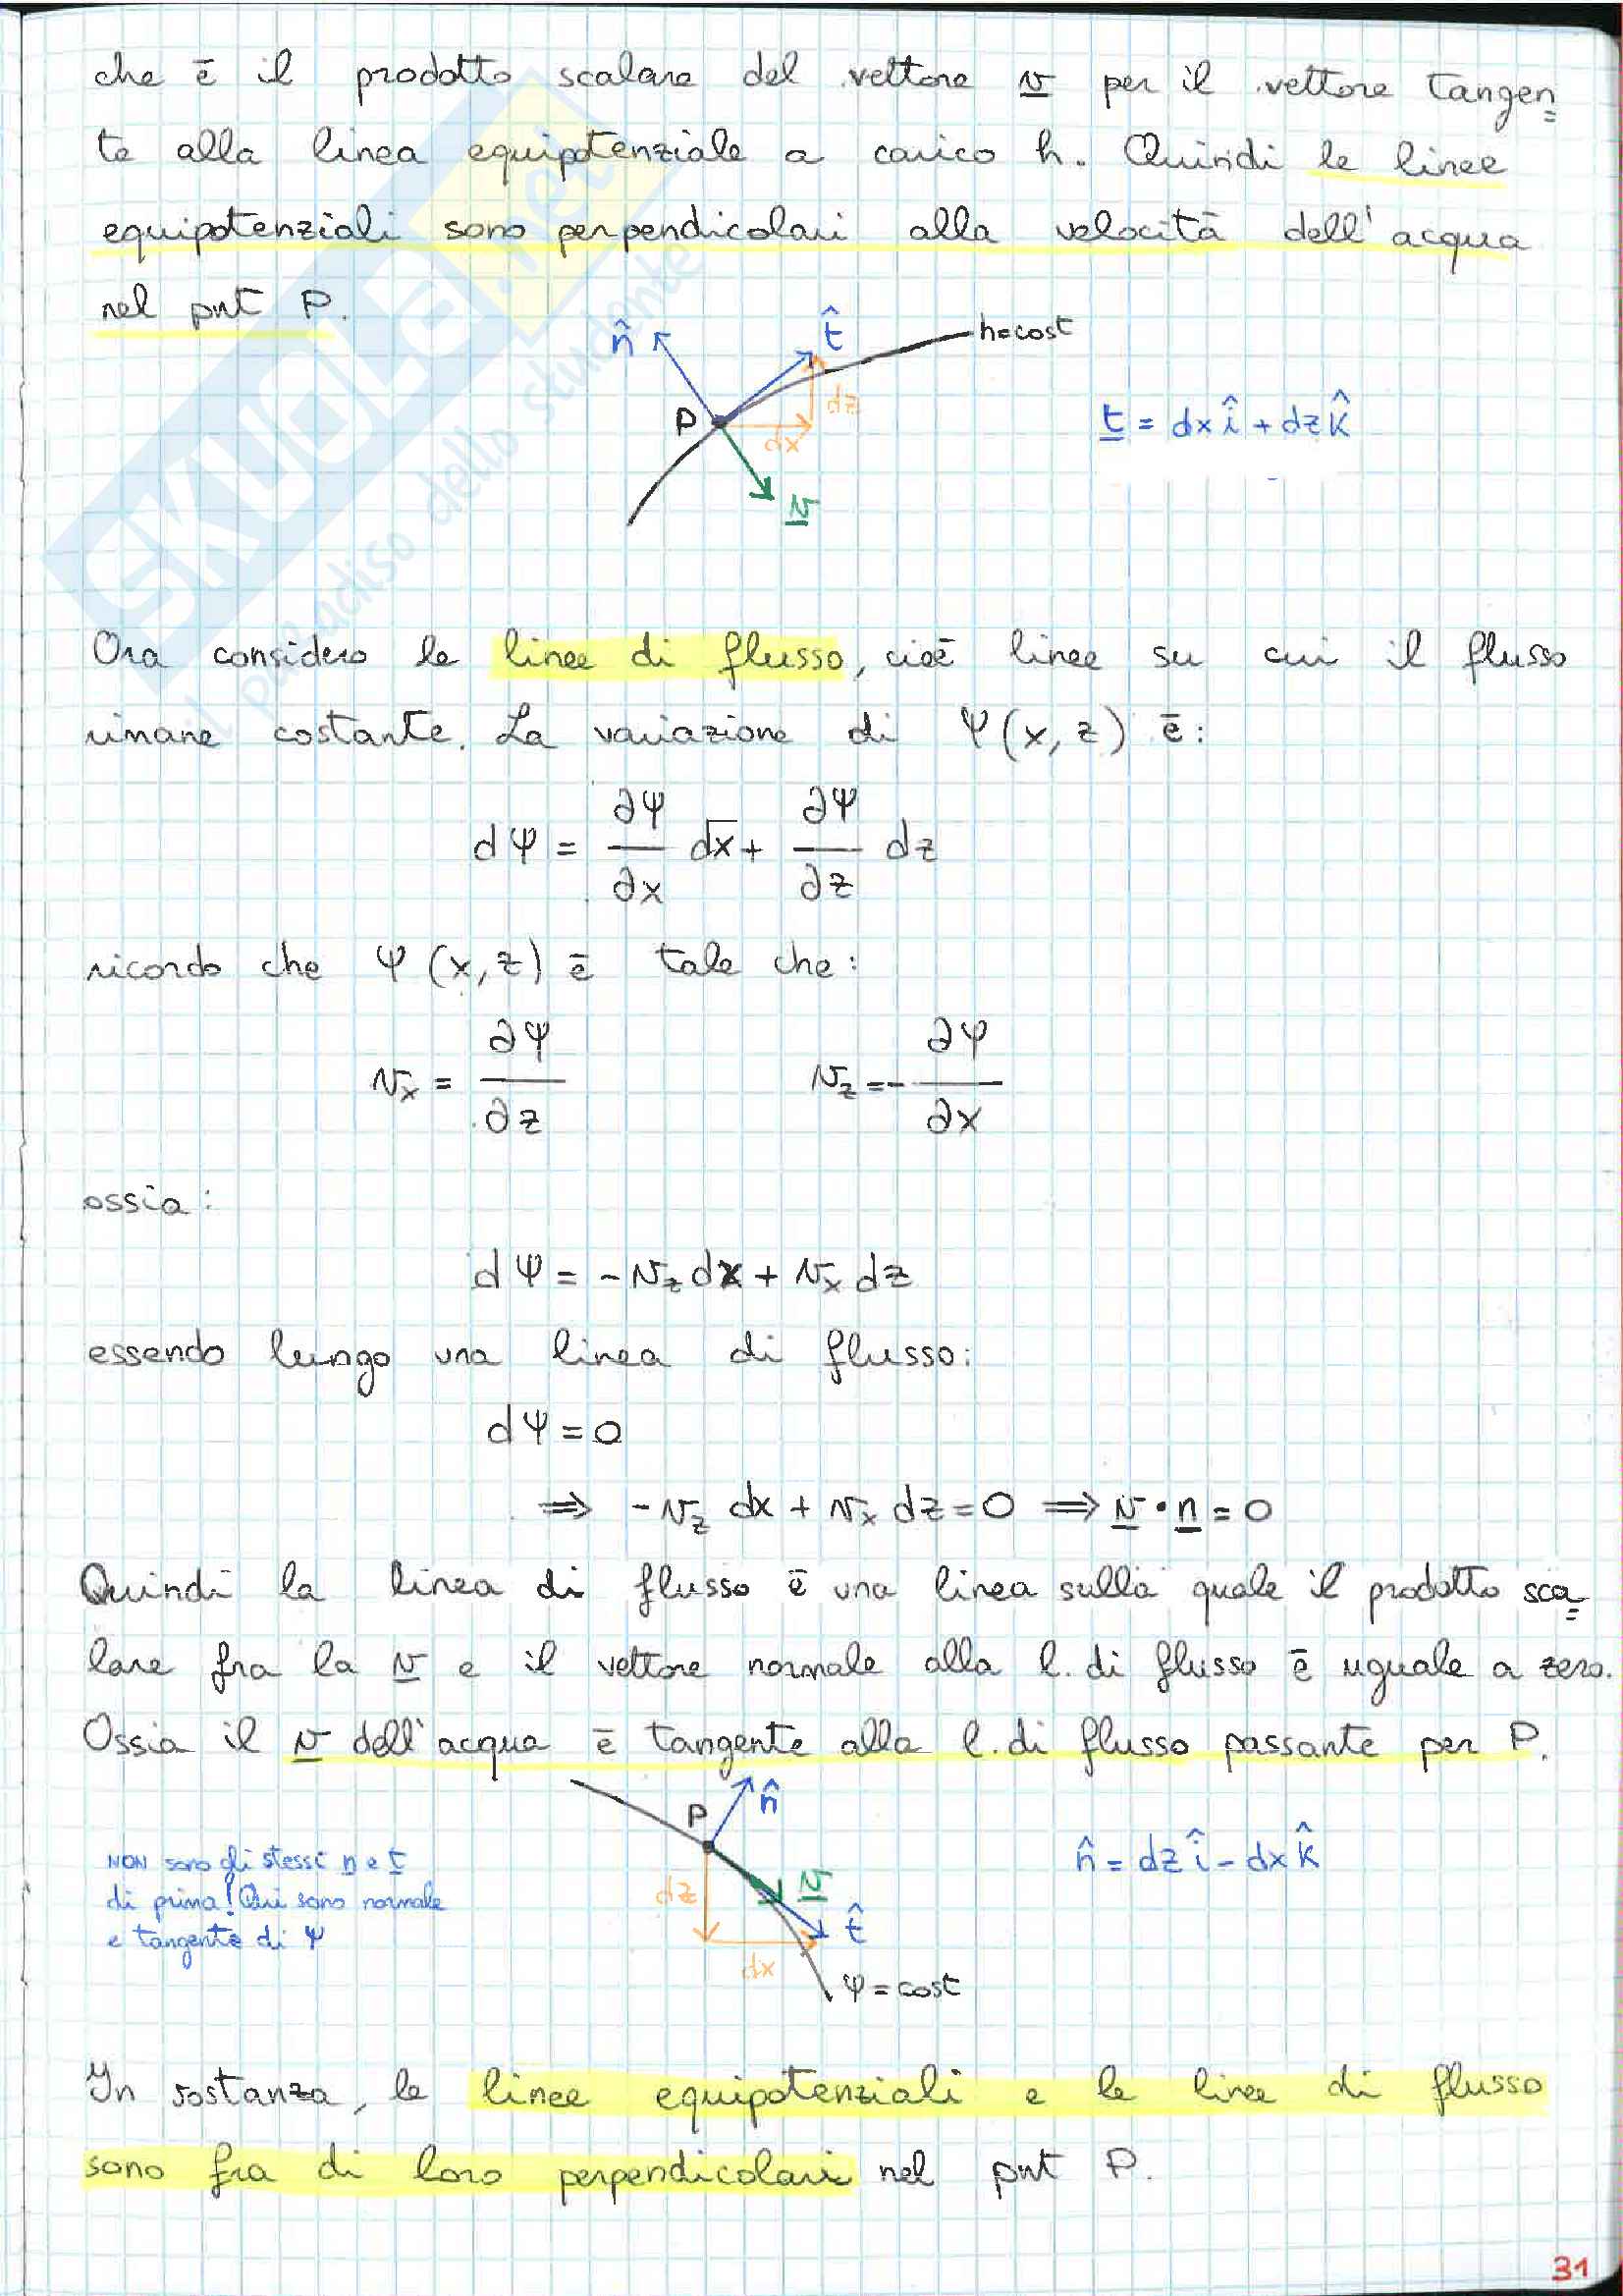 che è il prodotto scalare del vettore v per il vettore tangen=
te alla linea equipotenziale a carico h. Quindi le linee
equipotenziali sono perpendicolari alla velocità dell'acqua
nel pnt P.
n̂ t̂ h=cost
P dx dz
t = dx î + dz k̂
v
SKUOLA.net
il paradiso dello studente
Ora considero le linee di flusso, cioè linee su cui il flusso
rimane costante. La variazione di Ψ(x,z) è:
dΨ = ∂Ψ/∂x dx + ∂Ψ/∂z dz
ricordo che Ψ(x,z) è tale che:
vx = ∂Ψ/∂z vz = - ∂Ψ/∂x
ossia:
dΨ = -vz dx + vx dz
essendo lungo una linea di flusso:
dΨ = 0
⇒ -vz dx + vx dz = 0 ⇒ v • n = 0
Quindi la linea di flusso è una linea sulla quale il prodotto sca=
lare fra la v e il vettore normale alla l. di flusso è uguale a zero.
Ossia il v dell'acqua è tangente alla l. di flusso passante per P.
P n̂
NON sono gli stessi n e t
di prima! Qui sono normale
e tangente di Ψ
dz v t̂
dx
Ψ = cost
n̂ = dz î - dx k̂
In sostanza, le linee equipotenziali e le linee di flusso
sono fra di loro perpendicolari nel pnt P.
31